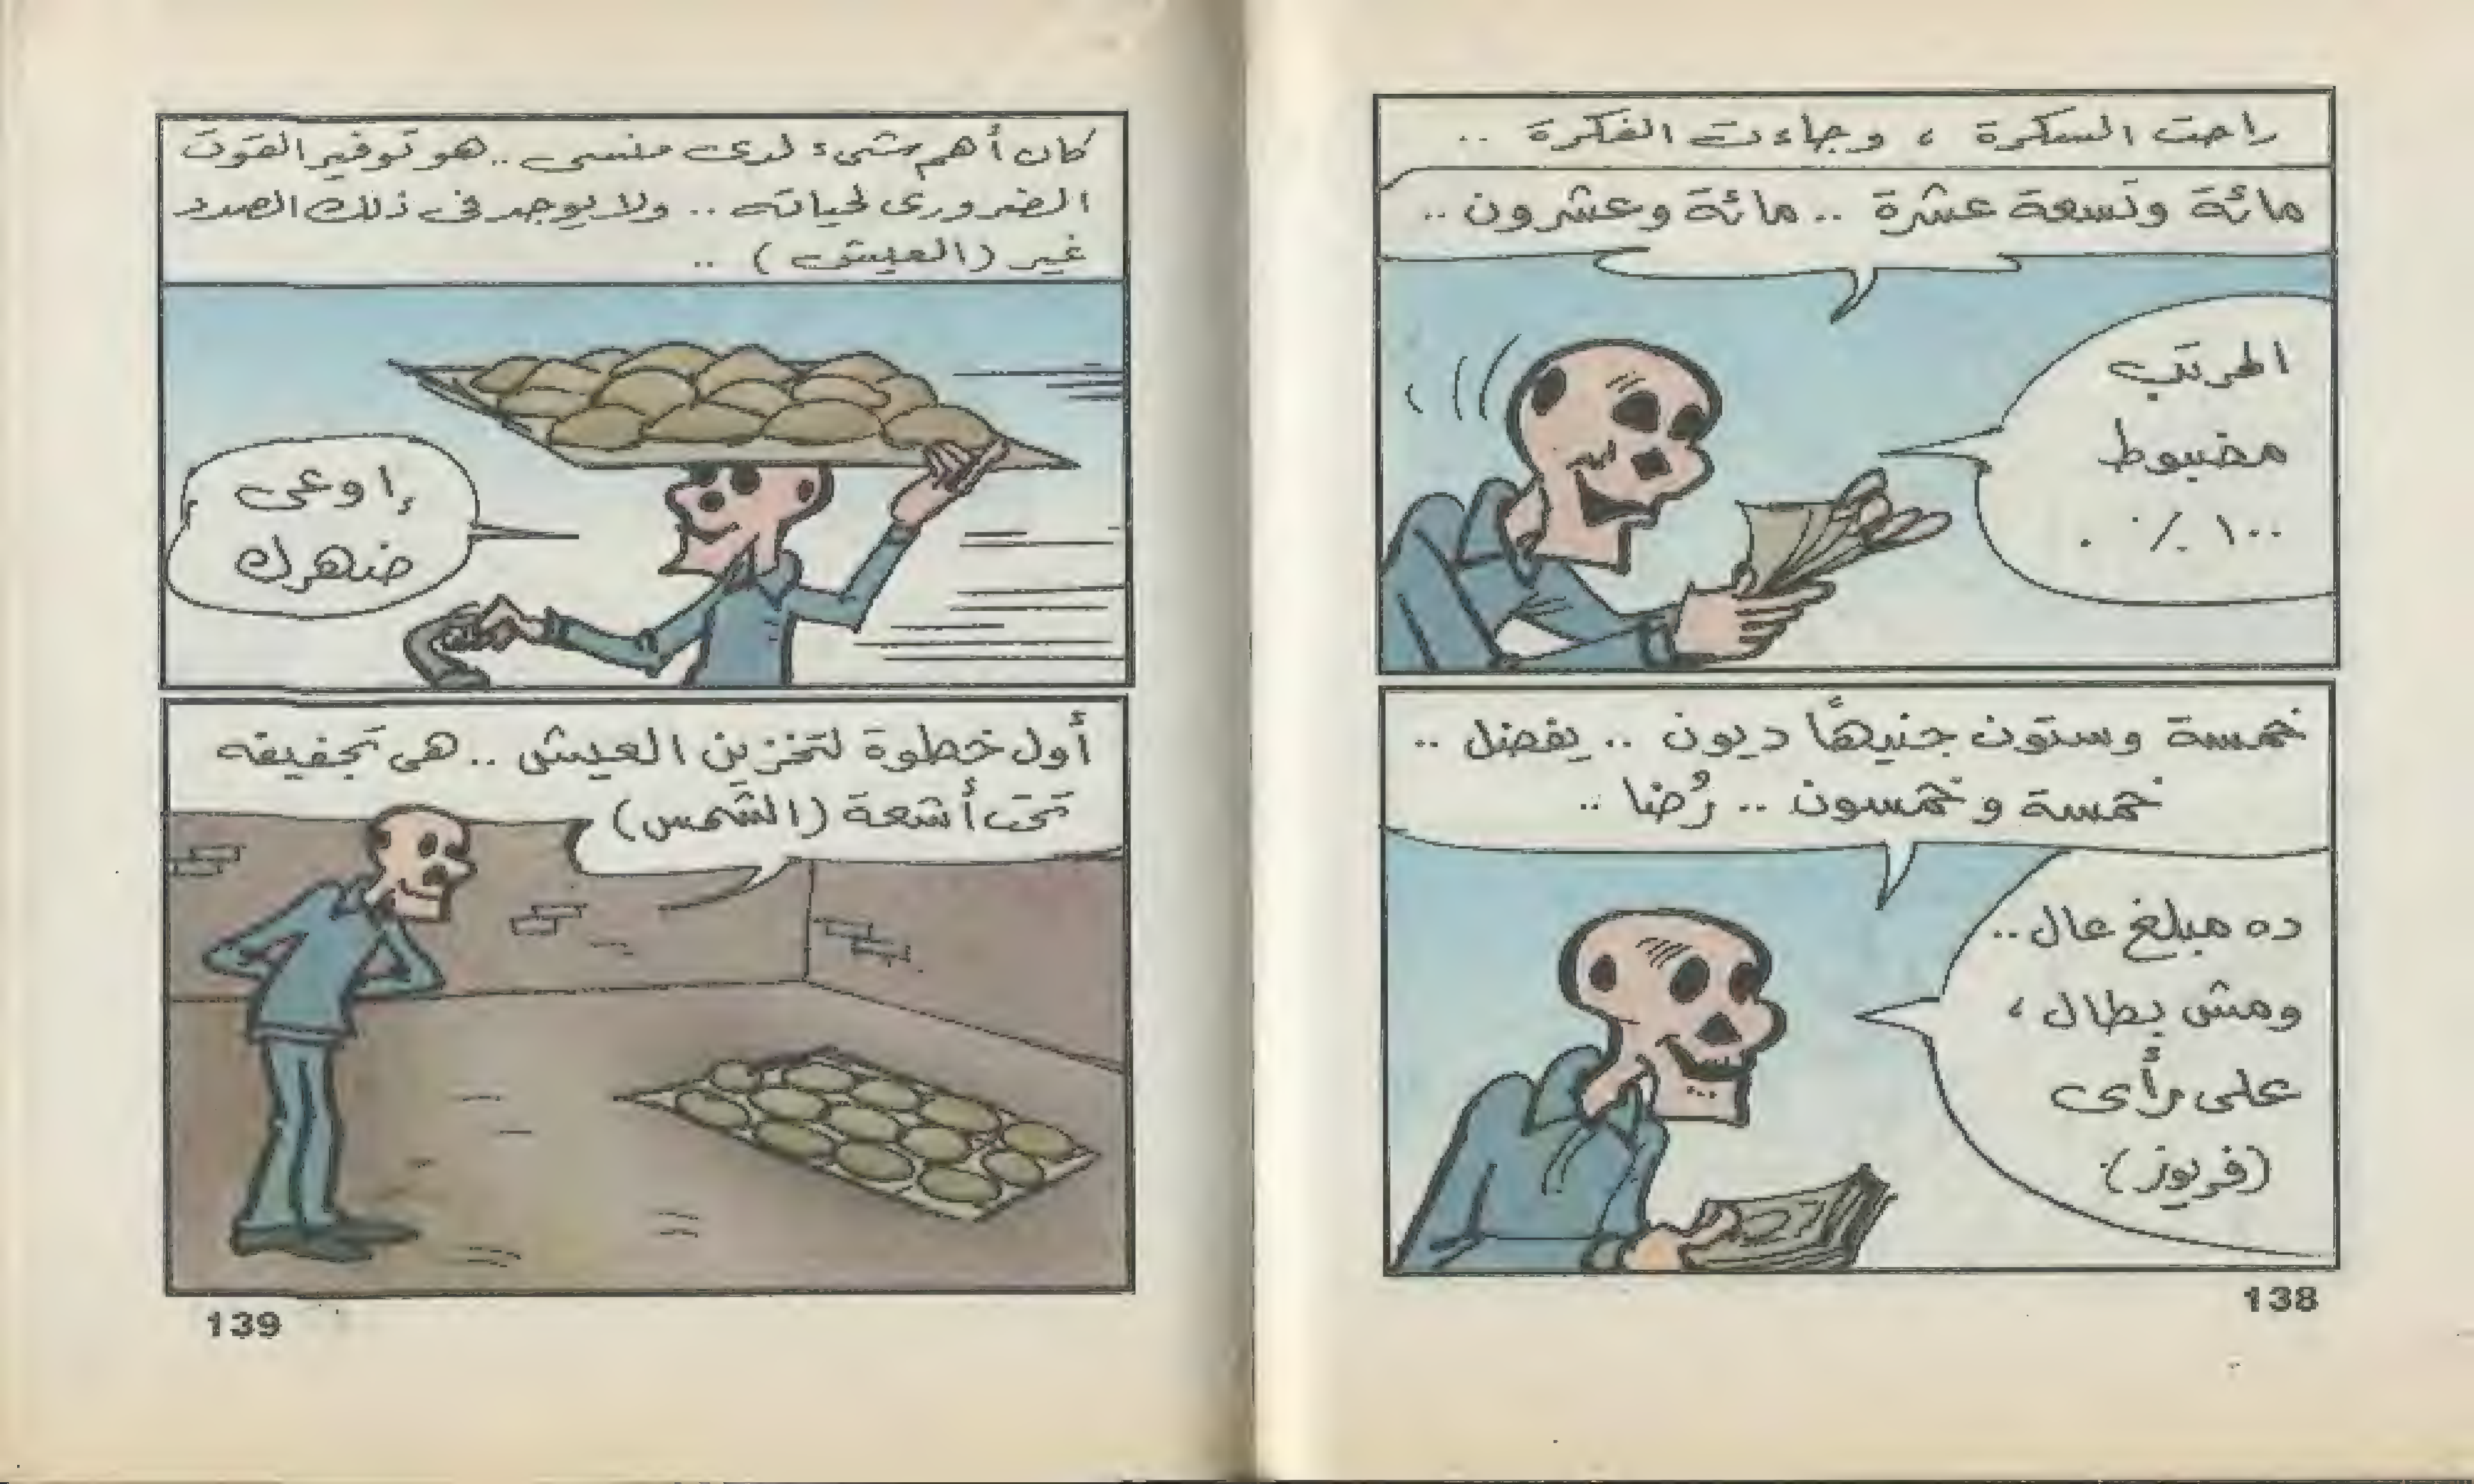 راحت السكرة ، وجاءت الفكرة ..
مائة وتسعة عشرة .. مائة وعشرون ..
المرتب
مضبوط
١٠٠ ٪ .
خمسة وستون جنيهًا ديون .. يفضل ..
خمسة وخمسون .. رُضا ..
ده مبلغ عال ..
ومش بطال ،
على رأى
(فريوز) .
138
كان أهم شىء لدى منسى .. هو توفير القوت
الضرورى لحياته .. ولا يوجد فى ذلك الصدد
غير (العيش) ..
إوعى
ضهرك
أول خطوة لتخزين العيش .. هى تجفيفه
تحت أشعة (الشمس)
139